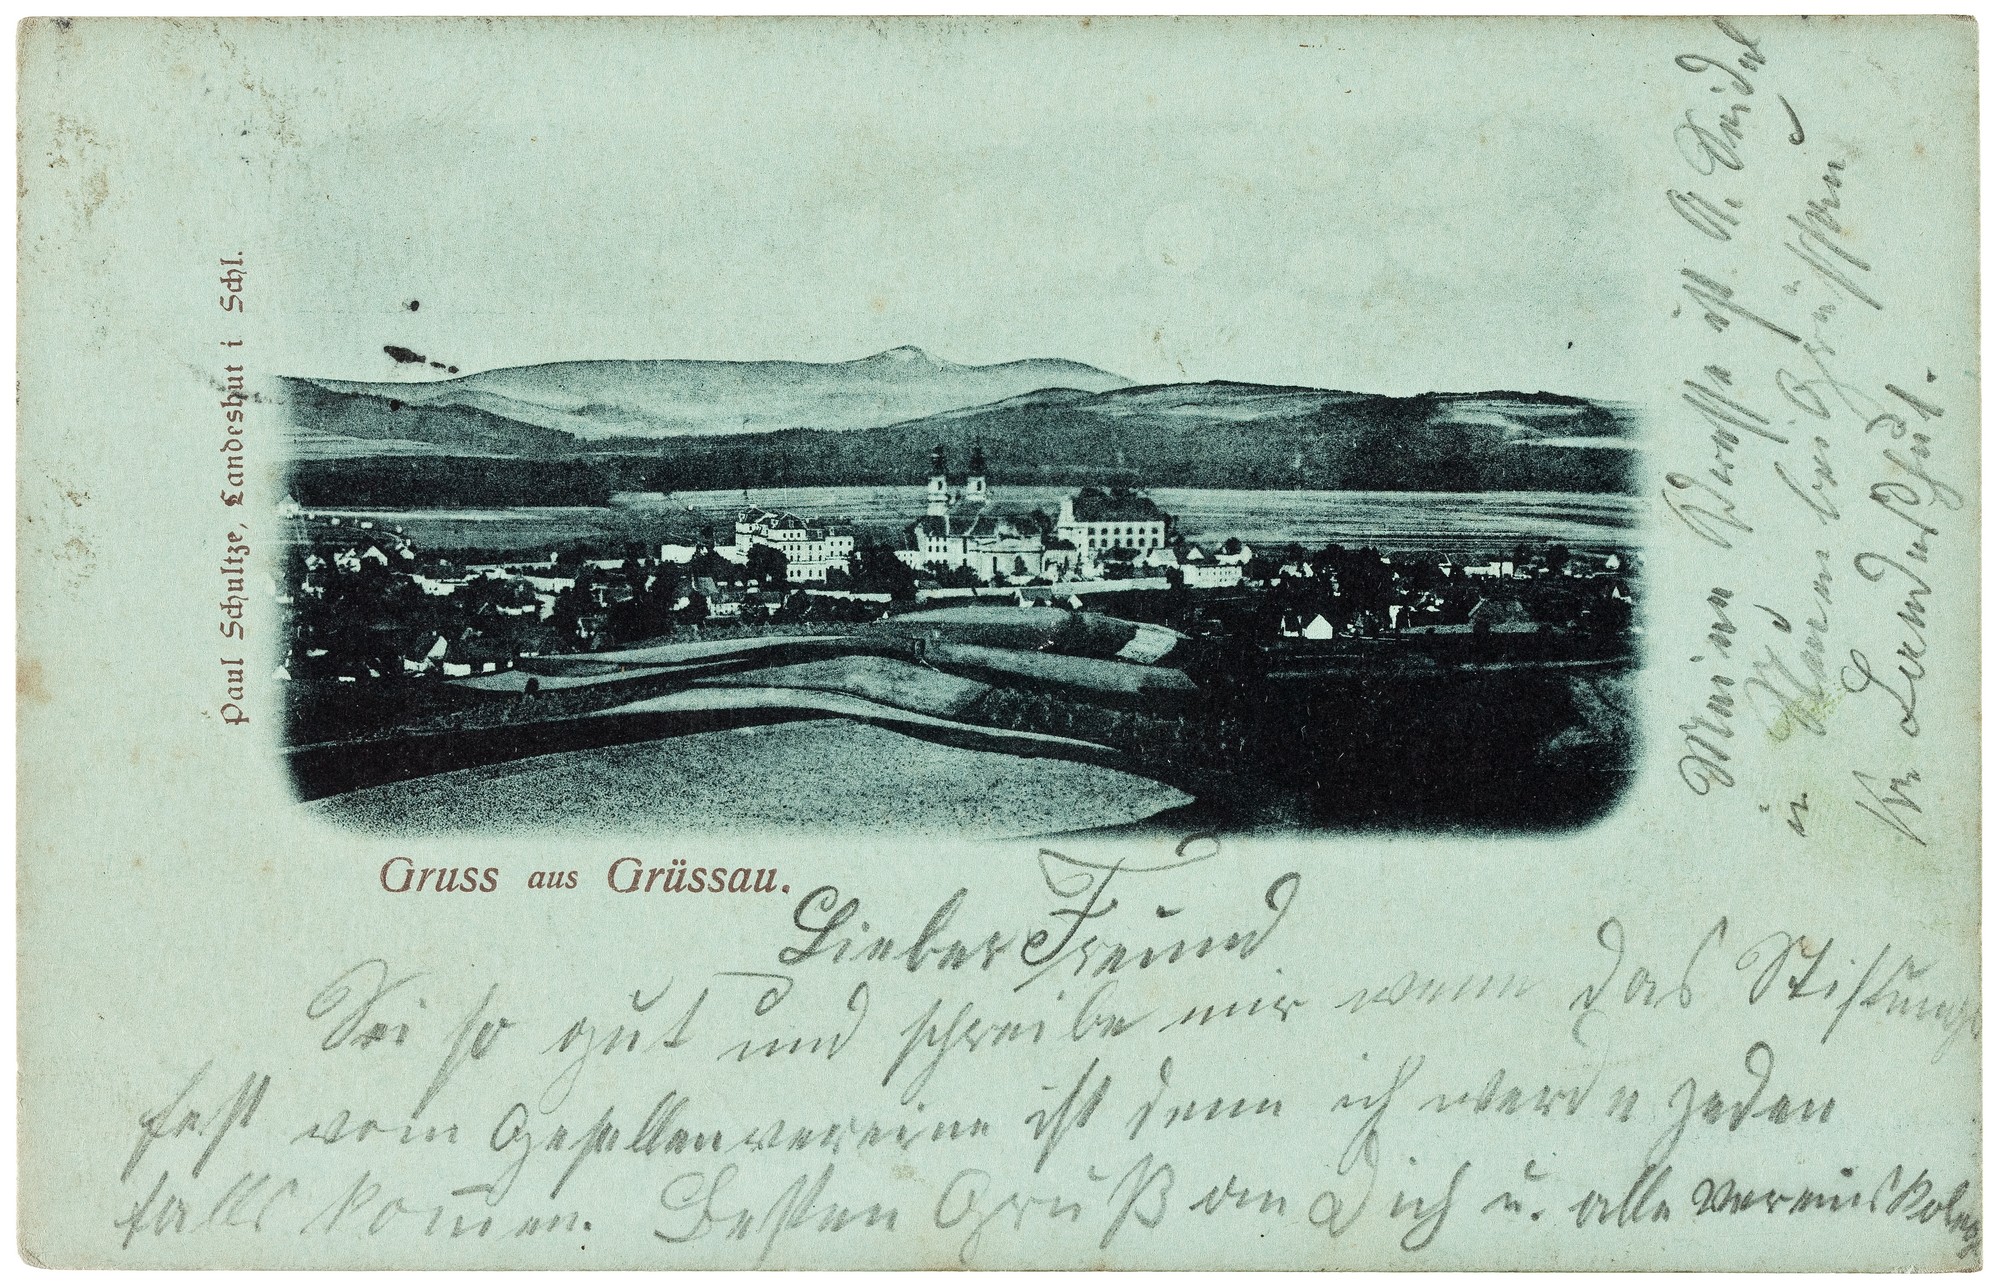 Paul Schultze, Landeshut i Schl.
Gruss aus Grüssau.
Lieber Freund
Sei so gut und schreibe mir wenn das Stiftungs
fest vom Gesellenvereine ist denn ich werde jeden
falls kommen. Besten Gruß an Dich u. alle Vereinskoleg
Meine Adresse ist A. Seidel
in Neuen bei Grüssau
Kr Landeshut.